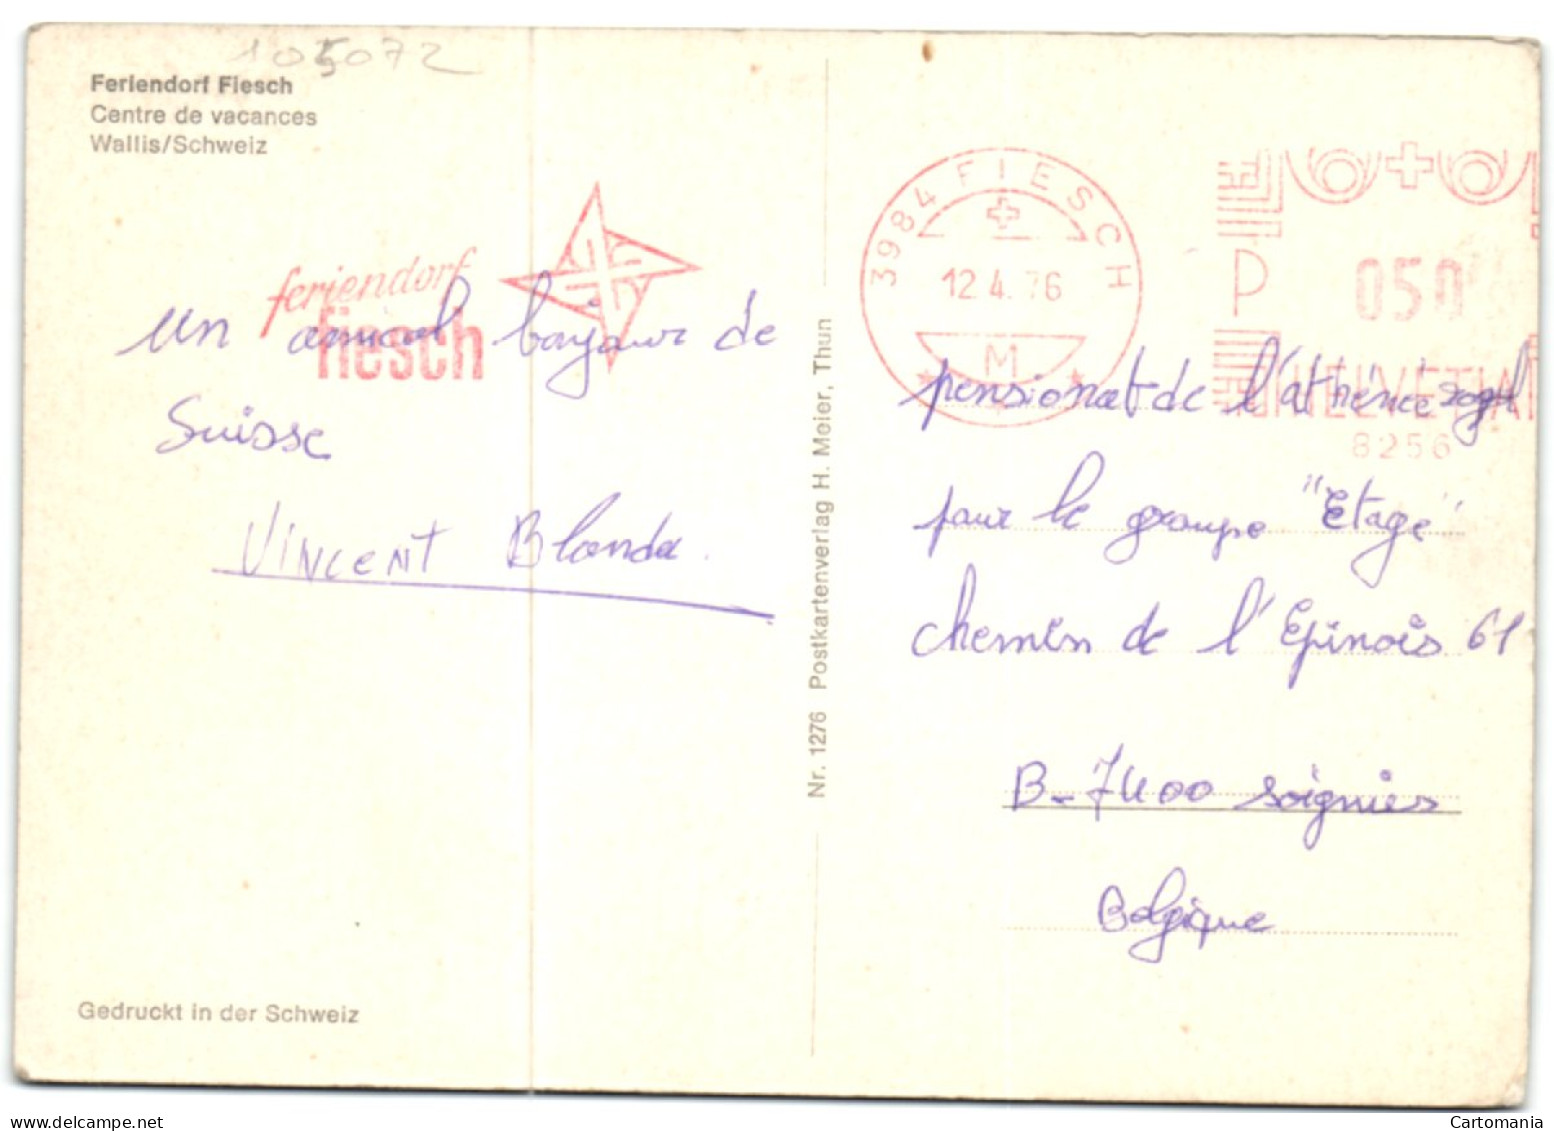 105072
Feriendorf Fiesch
Centre de vacances
Wallis/Schweiz
feriendorf
fiesch
un amical bonjour de
Suisse
Vincent Blonde
Gedruckt in der Schweiz
Nr. 1276 Postkartenverlag H. Meier, Thun
3984 FIESCH
12.4.76
M
P
050
HELVETIA
8256
pensionat de l'athénée royal
pour le groupe "Etage"
chemin de l'Epinois 61
B-7400 soignies
Belgique
Cartomania